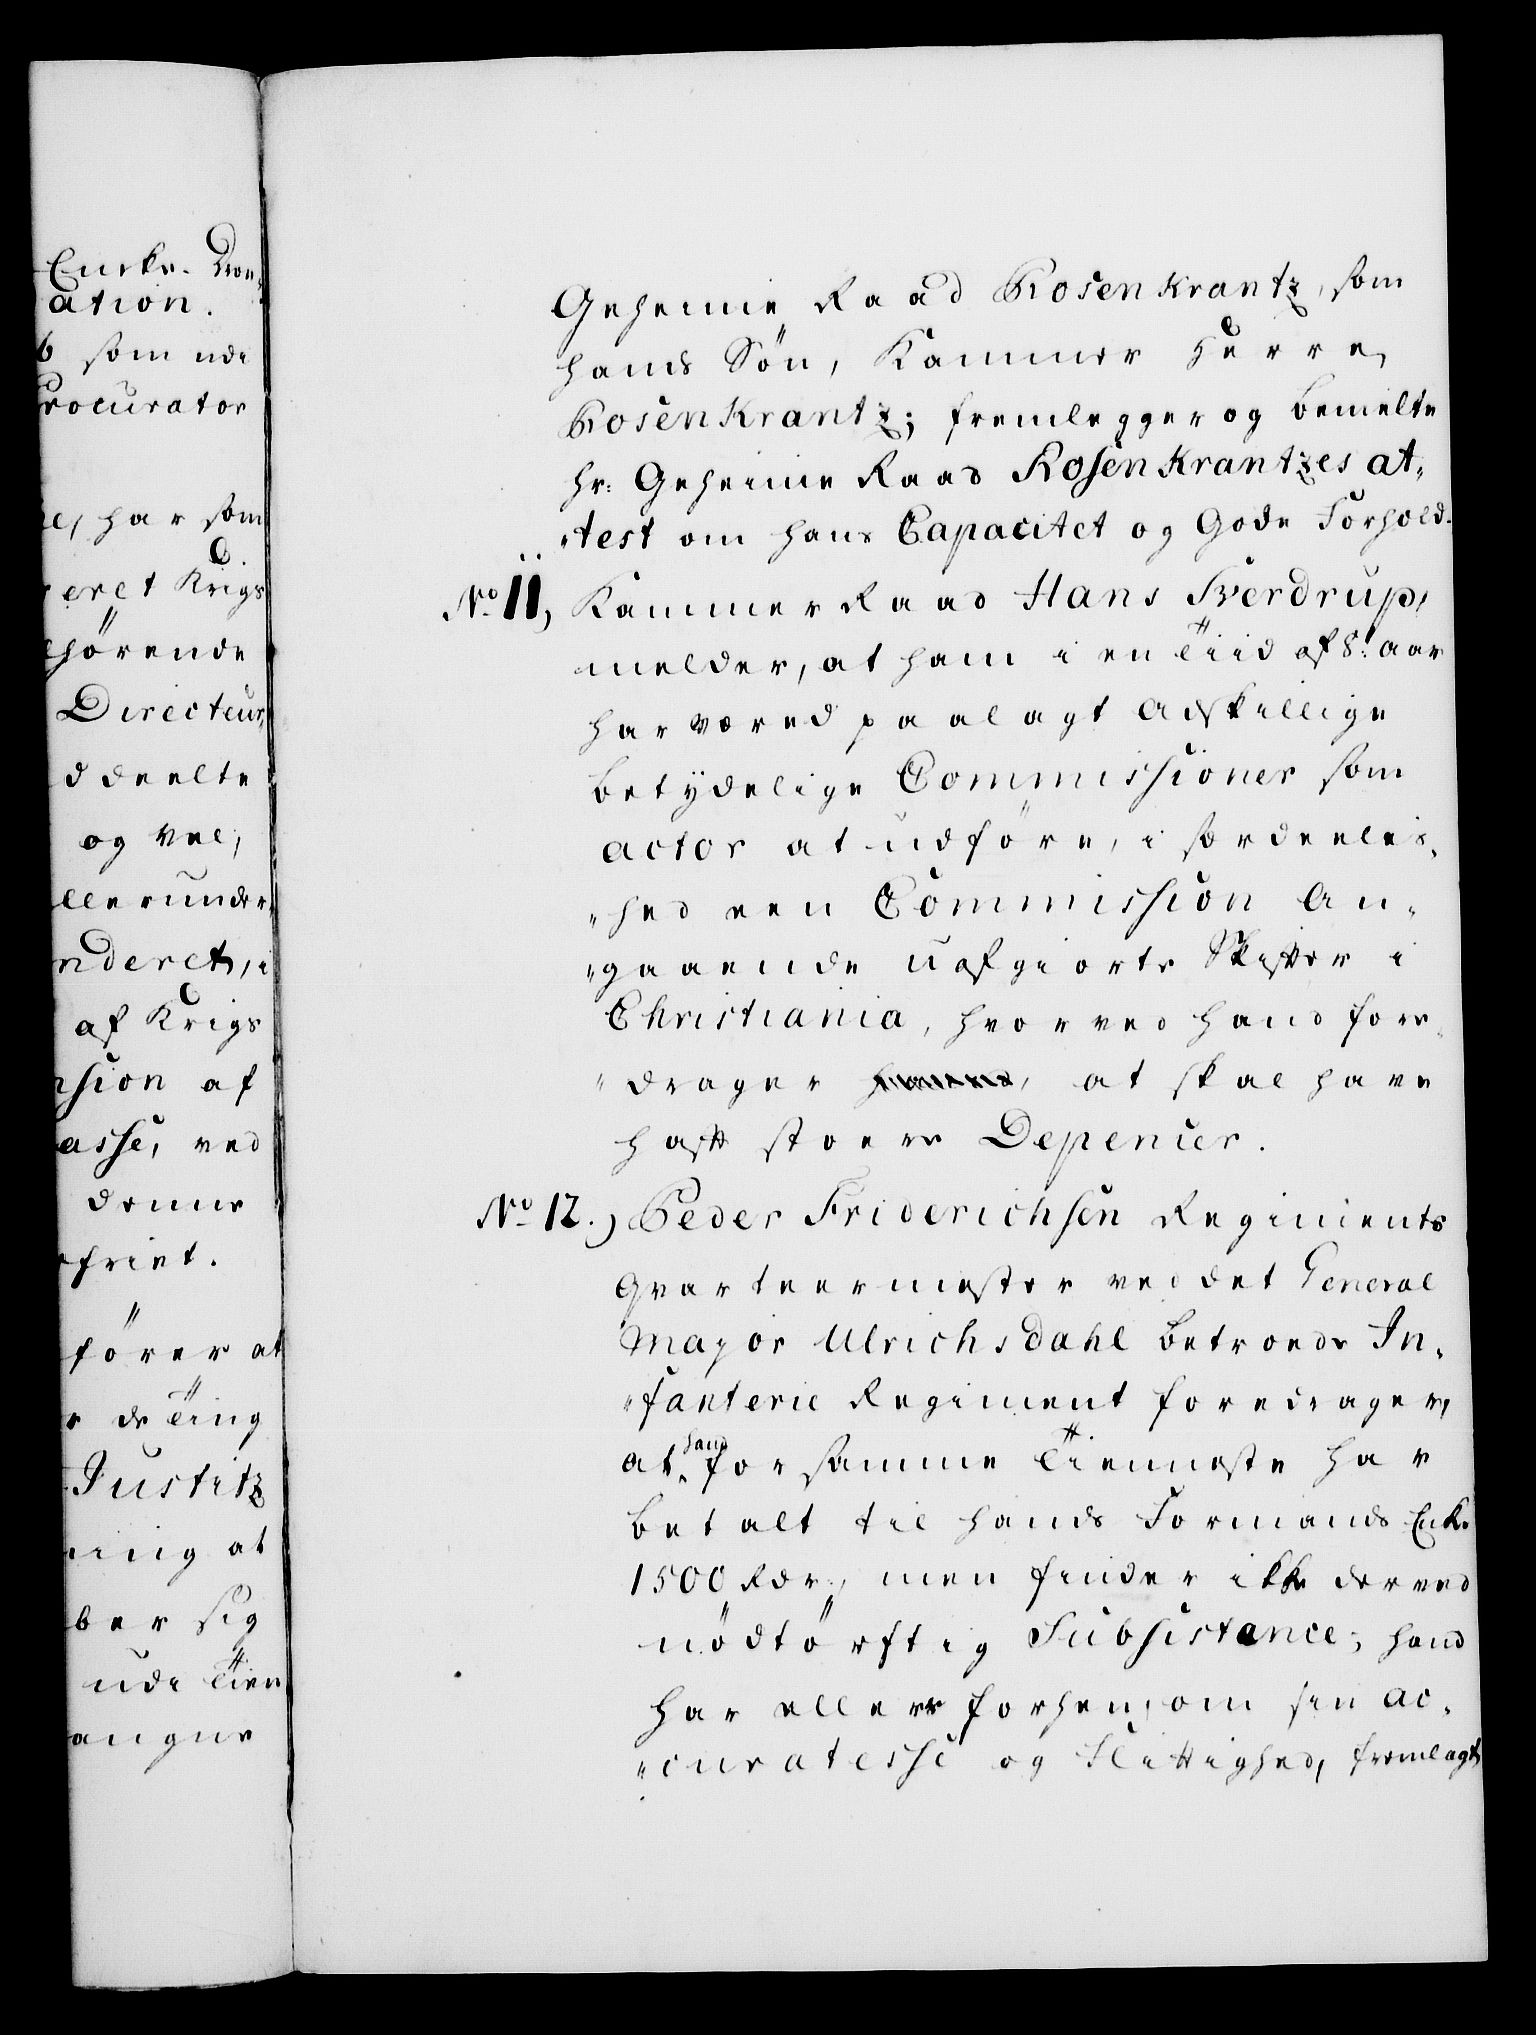 Enske. Don,,
ation.
b som udi
Procurator
e, har som
eret Krigs
hörende
Directeur,
d deelte
og vel,
llerunder,
nderet, i
af Krigs
nsion af
asse, ved
denne
friet.
förer at
r de Ting
Justitz
ning at
ber sig
udi Tien
angne
Geheime Raad Rosenkrantz, som
hands Sön, Kammer Herre
Rosenkrantz; fremlegger og bemelte
hr: Geheime Raad Rosenkrantzes at„
„test om hans Capacitet og Gode Forhold.
No. 11, Kammer Raad Hans Sverdrup,
melder, at ham i en Tiid af 8t. aar
har væred paalagt Adskillige
betÿdelige Commissioner som
actor at udföre, i særdeeles„
„hed een Commission An„
„gaaende uafgiorte Skifter i
Christiania, hvorved hand fore„
„drager, at skal have
haft stoere Depencer.
No. 12.) Peder Friderichsen Regiments
Qvarteermester ved det General
Major Ulrichsdahl betroede In„
„fanterie Regiment foredrager,
at hand for samme Tienneste har
betalt til hands Formands Enke
1500 Rdr., men finder ikke derved
nödtörftig Subsistance; hand
har ellers forhen, om sin ac„
„curatesse og Flittighed, fremlagt